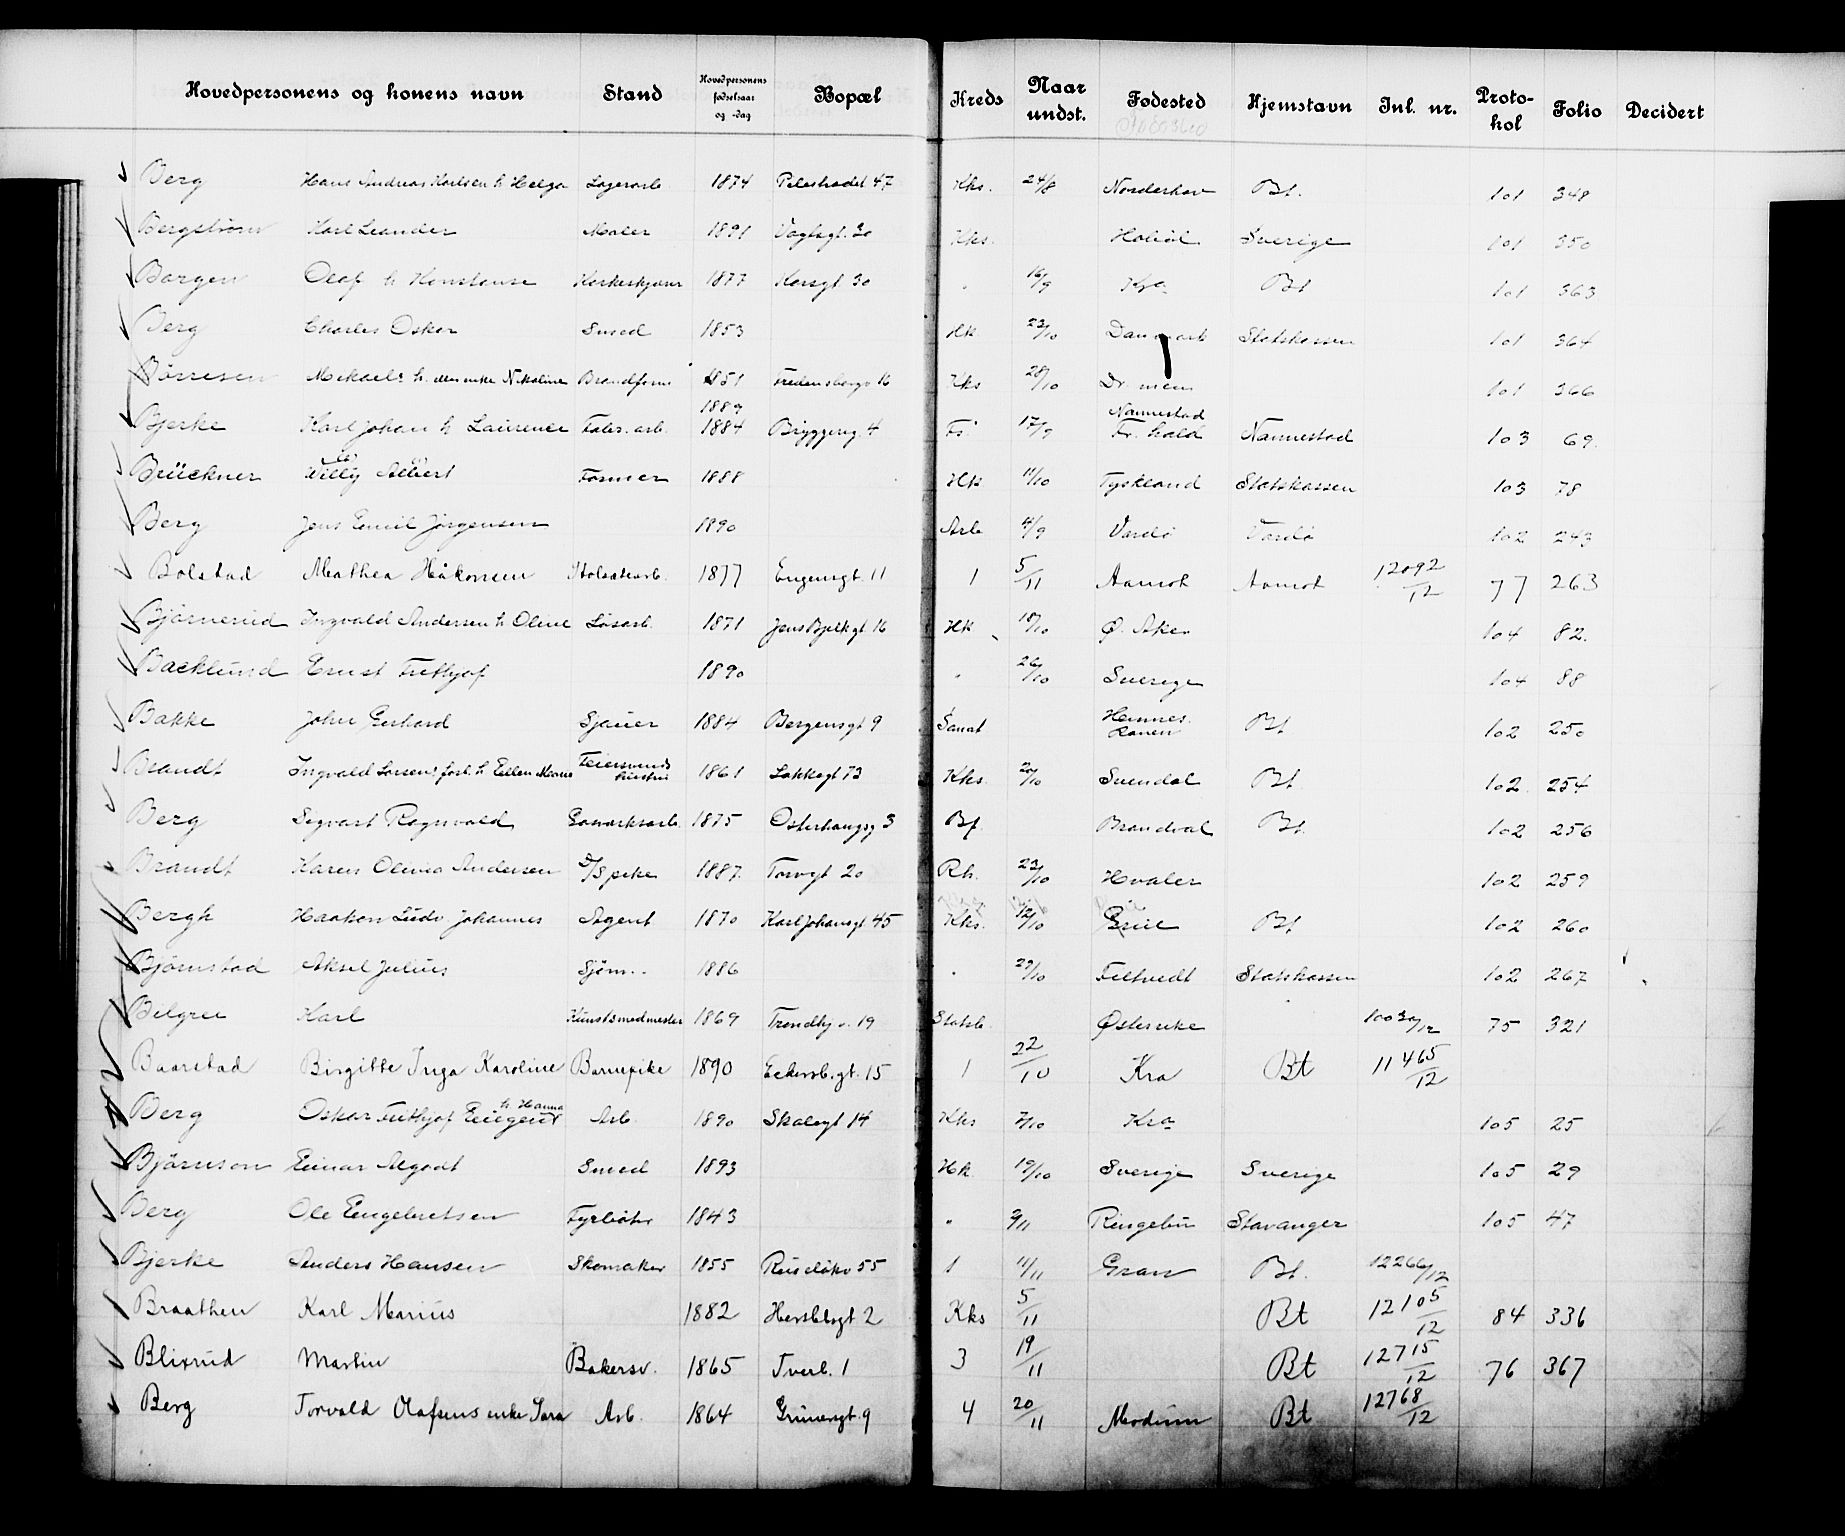 Hovedpersonens og konens navn Stand Hovedpersonens fødselsaar og -dag Bopæl Kreds Naar undst. Fødested Hjemstavn Inl. nr. Protokol Folio Decidert
Berg Hans Andreas Karlsen h Helga Lagerarb 1874 Pilestrædet 47 Kks. 24/8 Norderhov Bt. 101 348
Bergstrøm Karl Leander Maler 1891 Vogtsgt. 30 Kks. Sverige 101 350
Borgen Olaf h Konstanse 1877 Korsgt 30 " 16/9 Kra Bt 101 363
Berg Charles Oskar Smed 1853 Hk 23/10 Danmark Statskassen 101 364
Børresen Mikaels h. den enke Nikoline Brandform 1851 Fredensborgv 16 Kks 28/10 Dr men 101 366
Bjerke Karl Johan h Laurence Fabr. arb. 1889 1884 Bryggerig. 4 Fs. 17/9 Nannestad Fr. hald Nannestad 103 69.
Brückner Willy Albert Former 1888 Hk 11/10 Tyskland Statskassen 103 78
Berg Jens Emil Jørgensen 1890 Arb 4/9 Vardø Vardø 102 243
Bolstad Mathea Håkonsen 1877 Eugensgt. 11 1 5/11 Aamot Aamot 12092/12 77 263
Bjørnerud Ingvald Andersen h Oline Løsarb. 1871 Jens Bjelkgt 16 Hk 18/10 Ø. Aker 104 82.
Backlund Ernst Frithjof 1890 " 26/10 Sverige 104 88
Bakke Johan Gerhard Sjauer 1884 Bergensgt 9 Sanat Hemnes Ranen Bt 102 250
Brandt Ingvald Larsens forl. h Ellen Marie Feiersvends hustru 1861 Lakkegt 73 Kks. 20/10 Svendal Bt. 102. 254
Berg Segvart Ragnvald Gasverksarb. 1875 Osterhausg 3 Bf. Brandval Bt. 102 256
Brandt Karen Olivia Andersen D/Spike 1887. Torvgt 20 Rh. 23/10 Hvaler 102 259
Bergh Haakon Ludv. Johannes Agent 1870 Karl Johansgt 45 Kks. 12/10 Grue Bt 102 260
Bjørnstad Aksel Julius Sjøm. 1886 " 29/10 Filtvedt Statskassen 102 267
Bilgrei Karl Kunstsmedmester 1869 Trondhj. v. 19 Statsb. Østerrike 10030/12 75 321
Baarstad Birgitte Inga Karoline Barnepike 1890 Eckersb. gt. 15 1 22/10 Kra Bt 11465/12
Berg Oskar Frithjof Eugen h Hanna Arb. 1890 Skalegt 14 Kks 7/10 Kra 105 25
Bjørnson Einar Algodt Smed 1893 Hk. 19/10 Sverige Sverige 105 29
Berg Ole Engebretsen Fyrbøter 1843 " 2/11 Ringebu Stavanger 105 47
Bjerke Anders Hansen Skomaker 1855 Ruseløkv 55 1 11/11 Gran Bt. 12266/12
Braathen Karl Marius 1882 Herslebsgt 2 Kks 5/11 Bt 12105/12 84 336
Blixrud Martin Bakersv. 1865 Tverb. 1 3 19/11 Bt 12715/12 76 367
Berg Torvald Olafsens enke Sara Arb. 1864 Grünersgt. 9 4 20/11 Modum Bt 12768/12